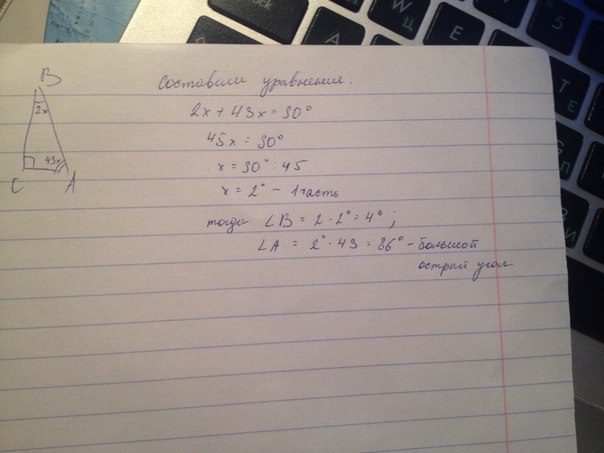 B
2x
43x
C
A
Составим уравнение:
2x + 43x = 90°
45x = 90°
x = 90° : 45
x = 2° - 1 часть
тогда ∠B = 2 · 2° = 4° ;
∠A = 2° · 43 = 86° - большой
острый угол
Backspace